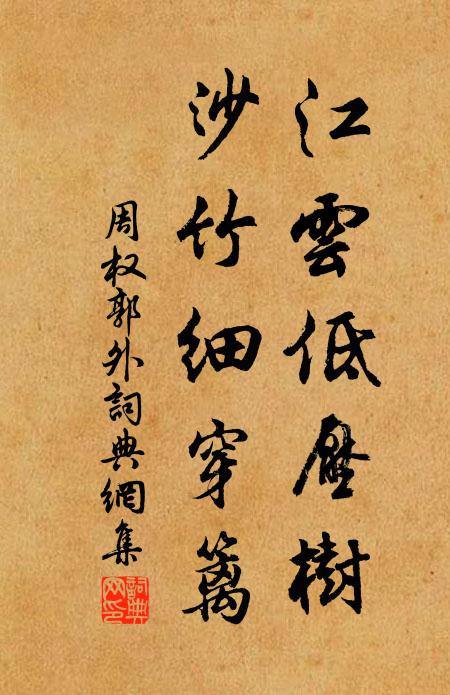 江雲低壓樹
沙竹細穿籬
周权郭外詞典網集
詞典网印